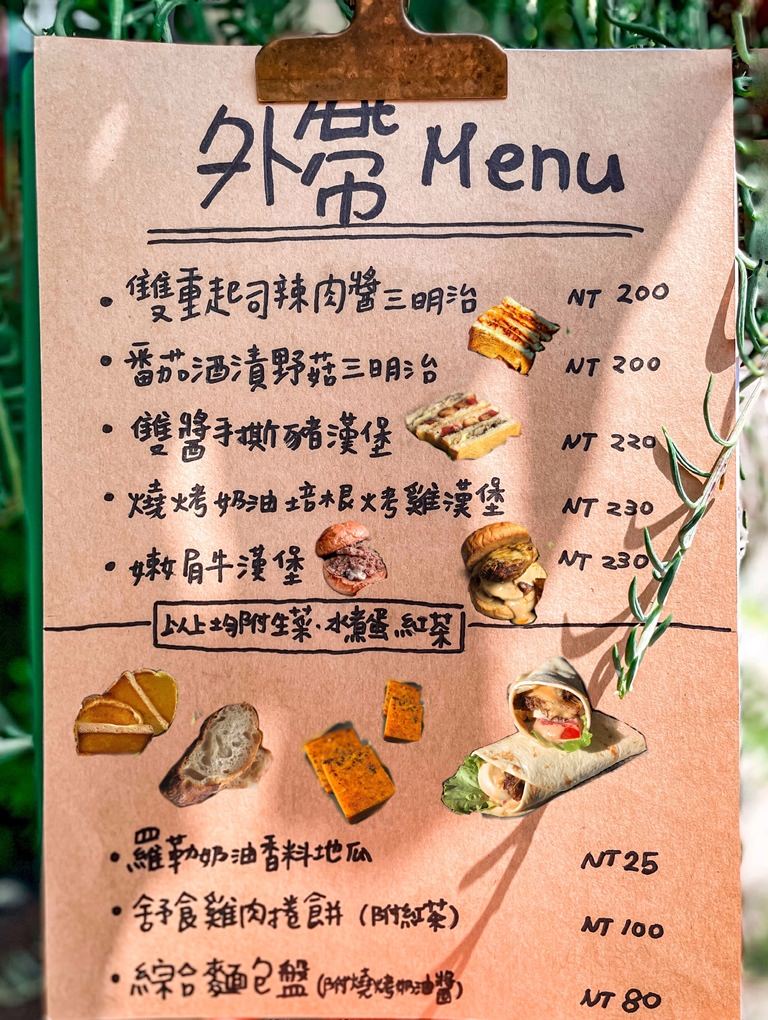 外帶 Menu
• 雙重起司辣肉醬三明治 NT 200
• 番茄酒漬野菇三明治 NT 200
• 雙醬手撕豬漢堡 NT 220
• 燒烤奶油培根烤雞漢堡 NT 230
• 嫩肩牛漢堡 NT 230
以上均附生菜·水煮蛋 紅茶
• 羅勒奶油香料地瓜 NT 25
• 舒食雞肉捲餅 (附紅茶) NT 100
• 綜合麵包盤 (附燒烤奶油醬) NT 80